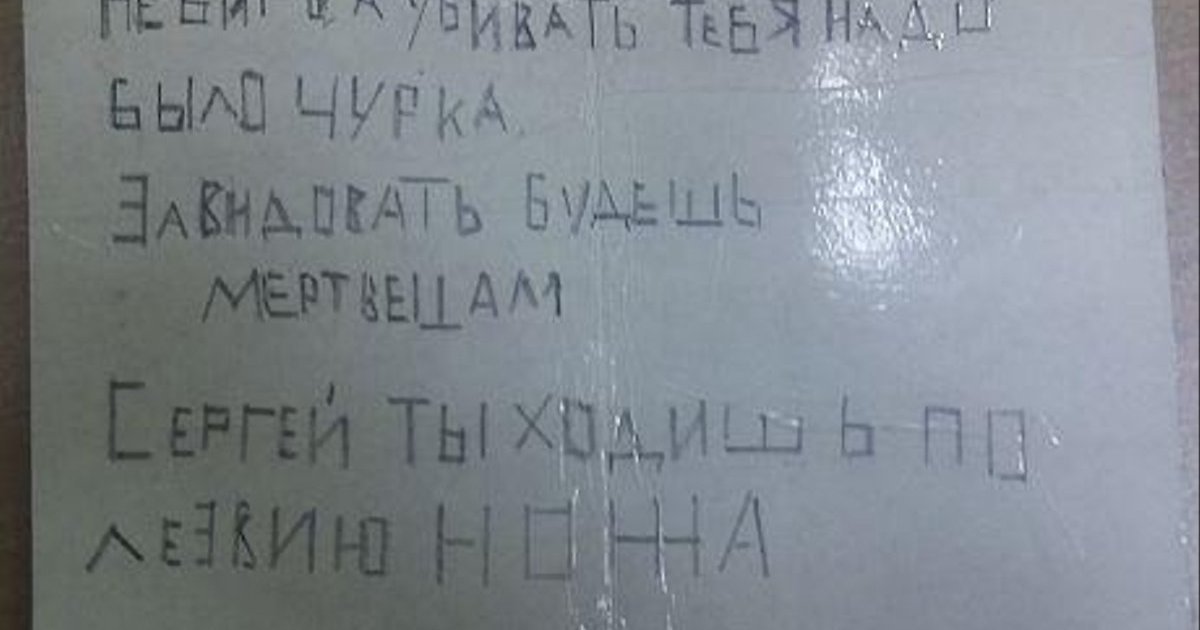 УБИВАТЬ ТЕБЯ НАДО
БЫЛО ЧУРКА.
ЗАВИДОВАТЬ БУДЕШЬ
МЕРТВЕЦАМ
СЕРГЕЙ ТЫ ХОДИШЬ ПО
ЛЕЗВИЮ НОЖА